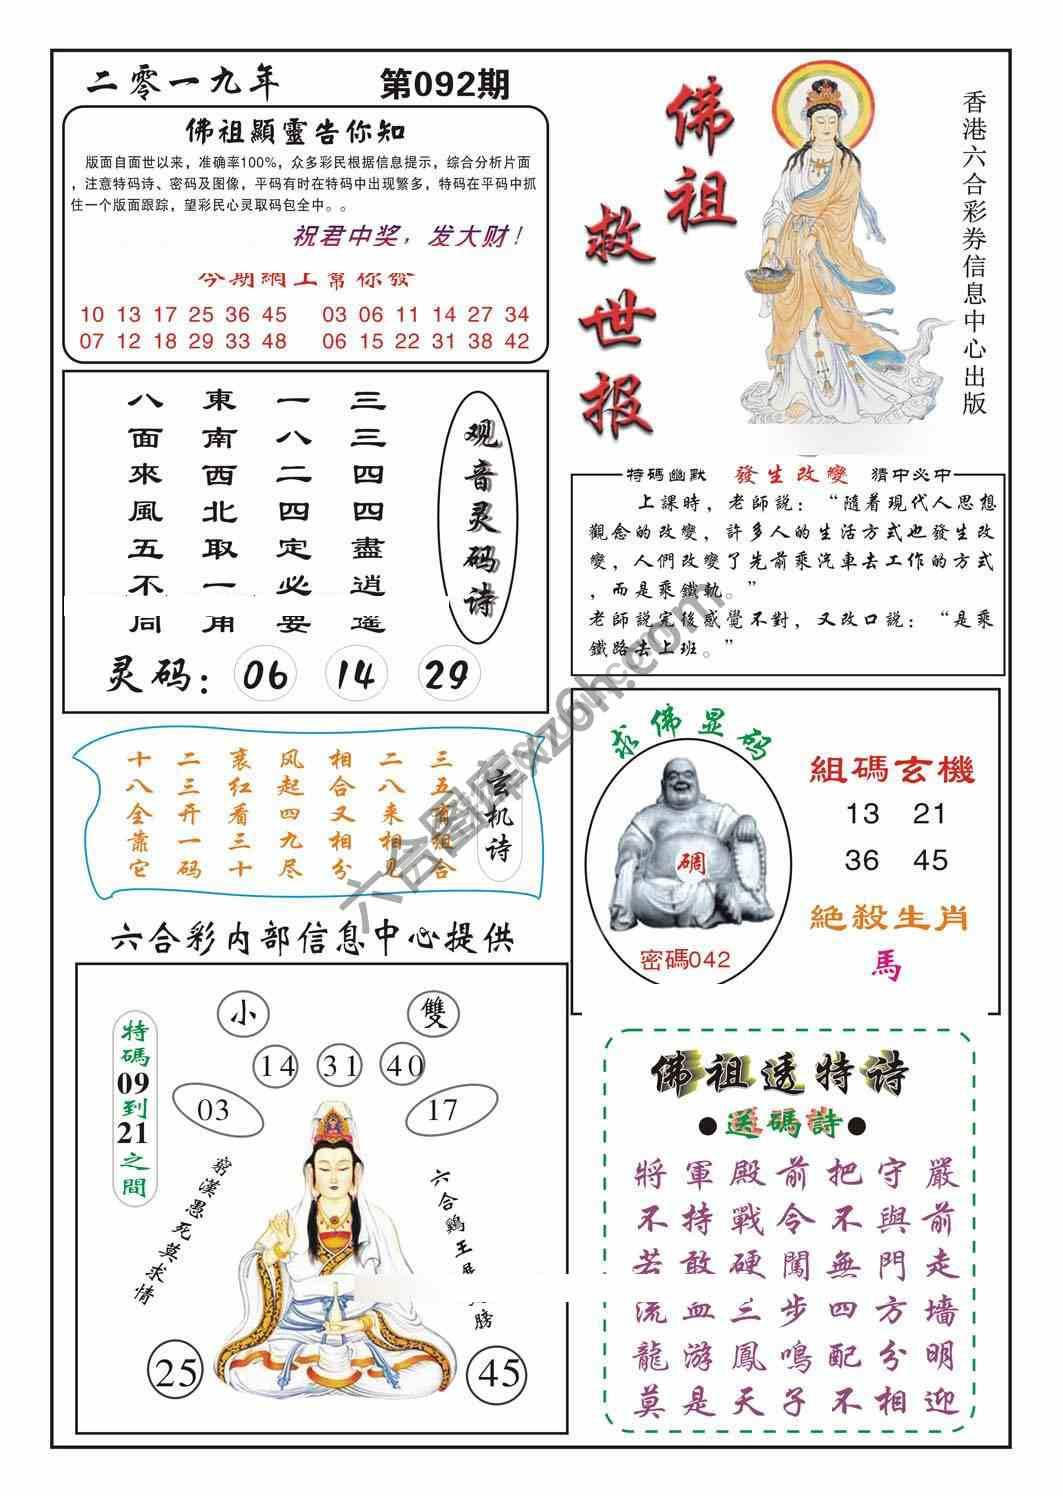 二零一九年
第092期
佛祖顯靈告你知
版面自面世以来，准确率100%，众多彩民根据信息提示，综合分析片面
，注意特码诗、密码及图像，平码有时在特码中出现繁多，特码在平码中抓
住一个版面跟踪，望彩民心灵取码包全中。。
祝君中奖，发大财！
今期網上幫你發
10 13 17 25 36 45
03 06 11 14 27 34
07 12 18 29 33 48
06 15 22 31 38 42
佛祖
救世报
香港六合彩券信息中心出版
八面來風五不同
東南西北取一用
一八二四定必要
三三四四盡逍遥
观音灵码诗
灵码：
06
14
29
特碼幽默
發生改變
猜中必中
上課時，老師説：“隨着現代人思想
觀念的改變，許多人的生活方式也發生改
變，人們改變了先前乘汽車去工作的方式
，而是乘鐵軌。”
老師説完後感覺不對，又改口説：“是乘
鐵路去上班。”
十八全靠它
二三开一码
裹红看三十
风起四九尽
相合又相分
二八来相见
三五有组合
玄机诗
求佛显码
碉
密碼042
組碼玄機
13 21
36 45
絶殺生肖
馬
六合彩内部信息中心提供
特碼09到21之間
小
雙
14
31
40
03
17
窮漢愚死莫求情
六合鷄王
榜
25
45
佛祖透特诗
●送碼詩●
將軍殿前把守嚴
不持戰令不與前
若敢硬闖無門走
流血三步四方墻
龍游鳳鳴配分明
莫是天子不相迎
六合图库xz6h.com